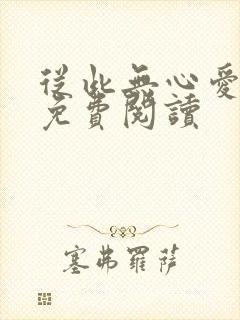 從此無心愛
免費閱讀
塞弗羅薩